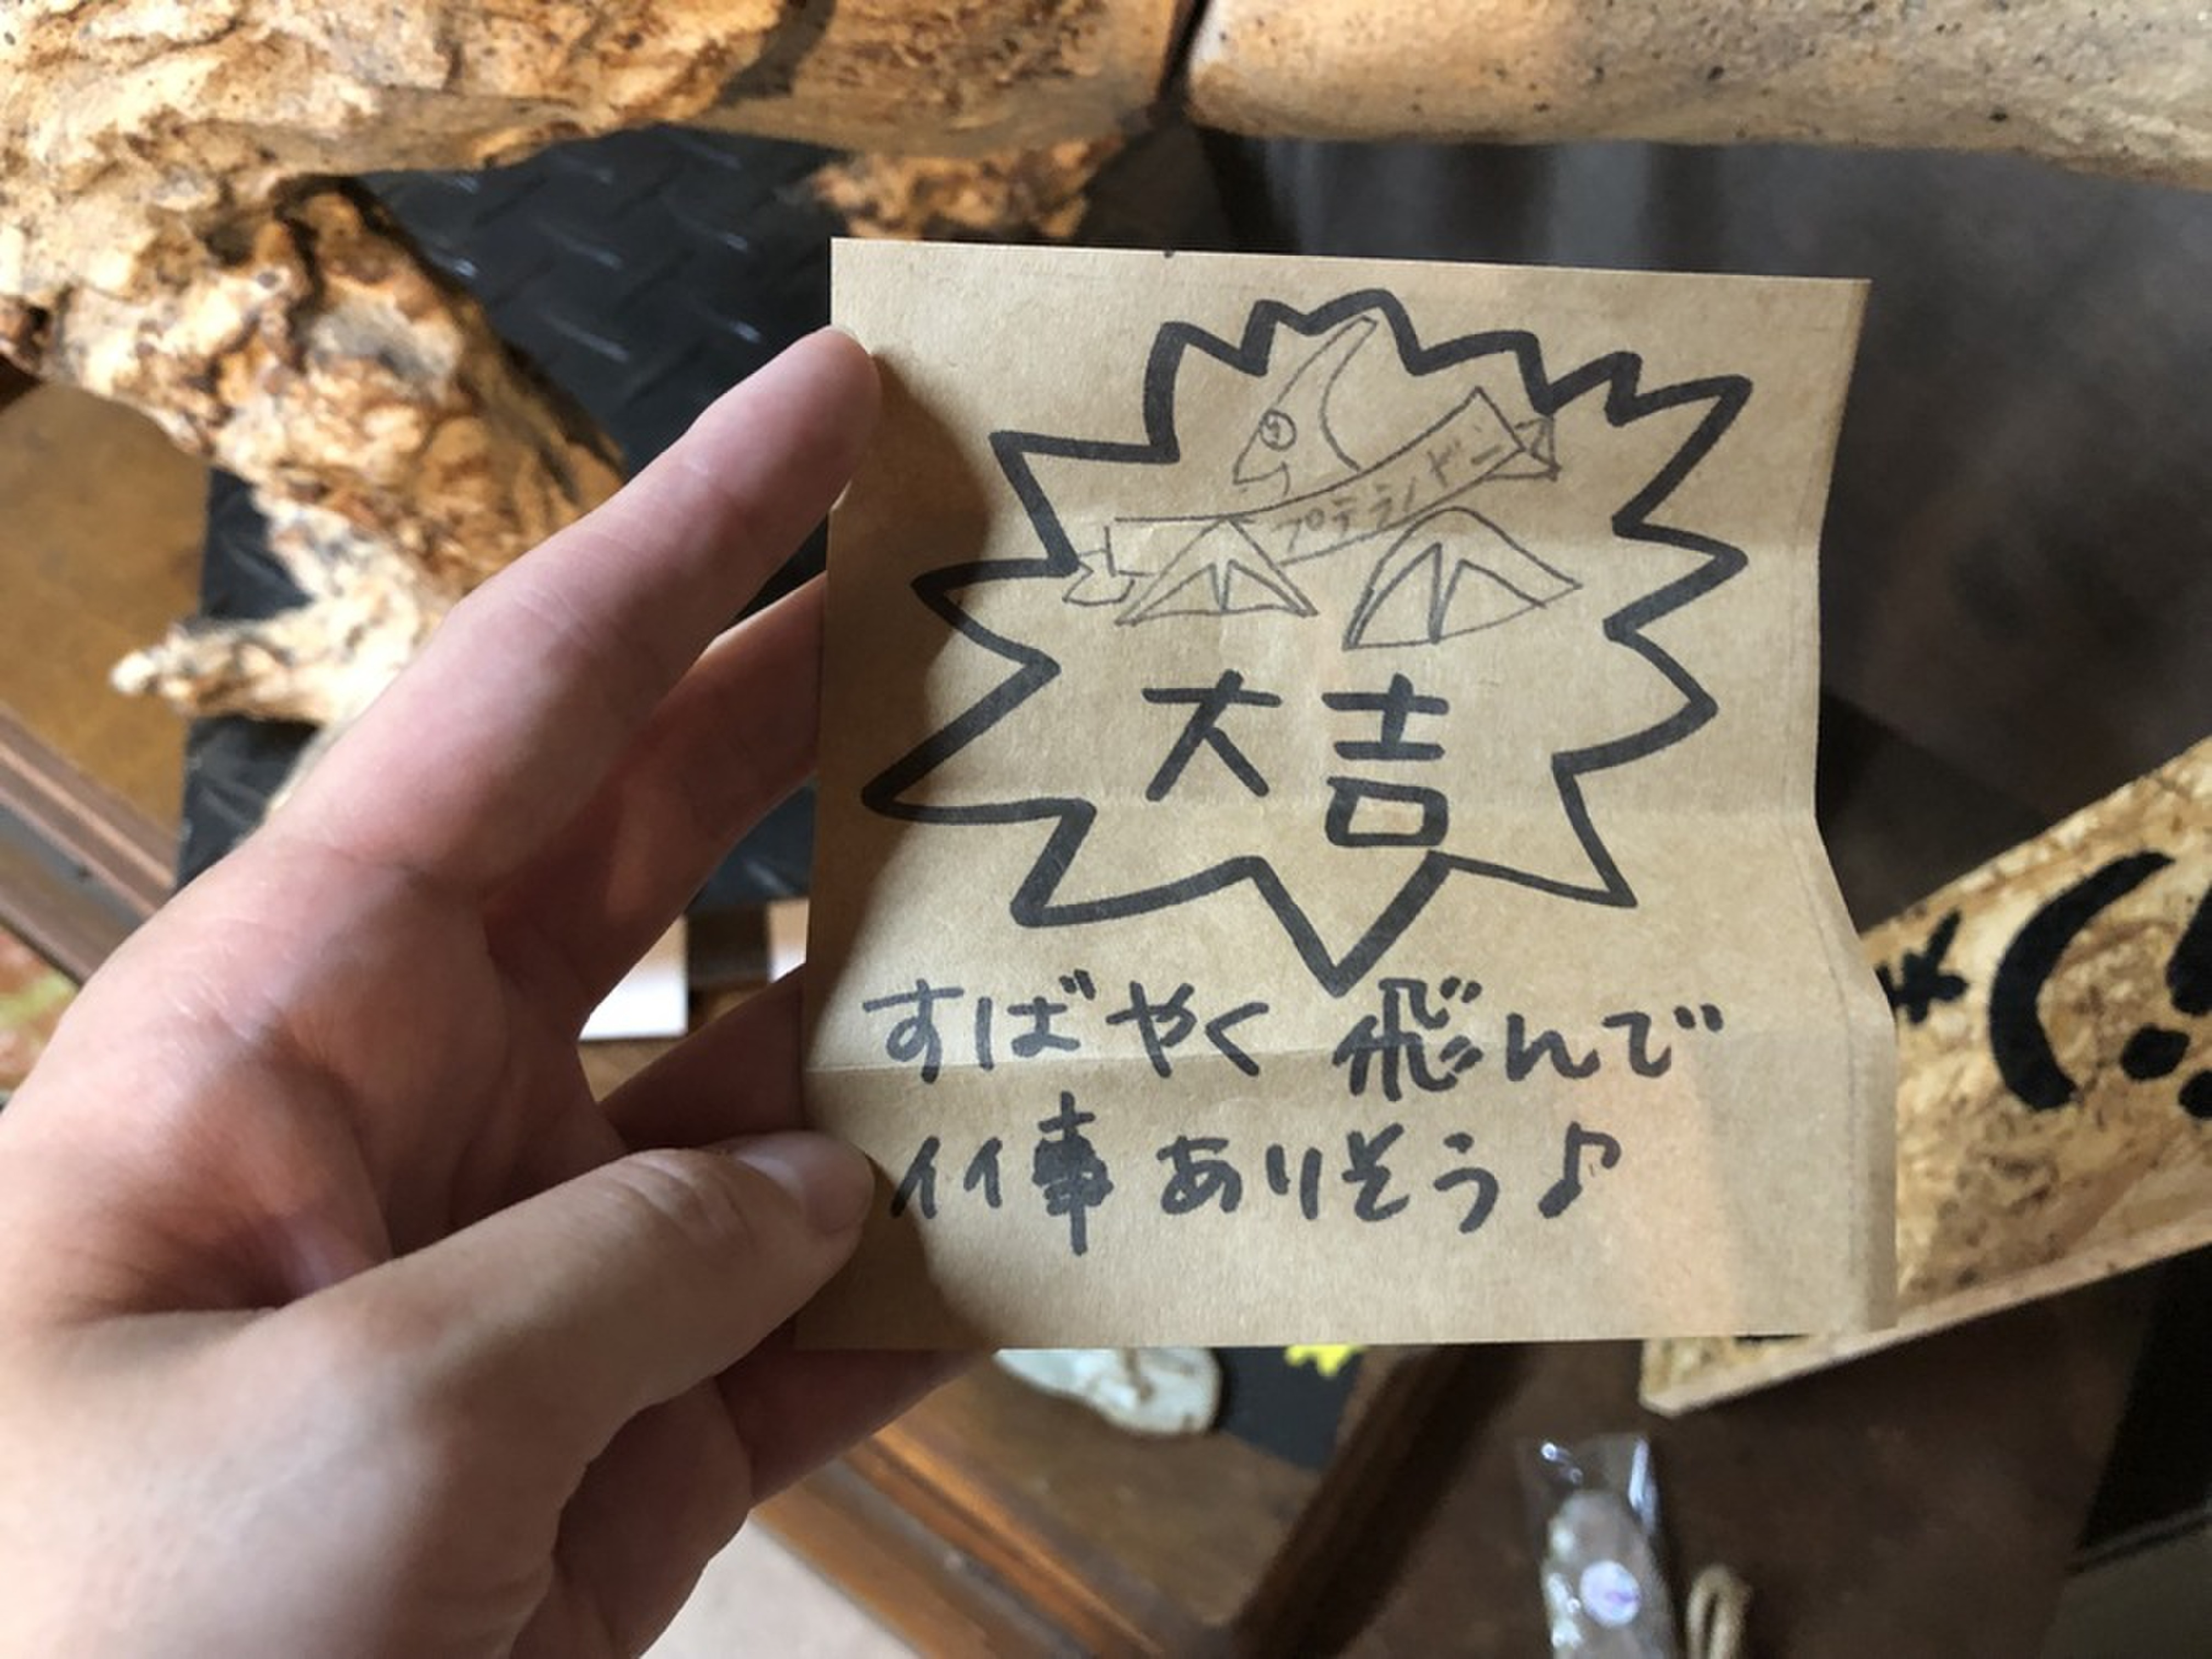 プテラノドン
大吉
すばやく飛んで
イイ事ありそう♪